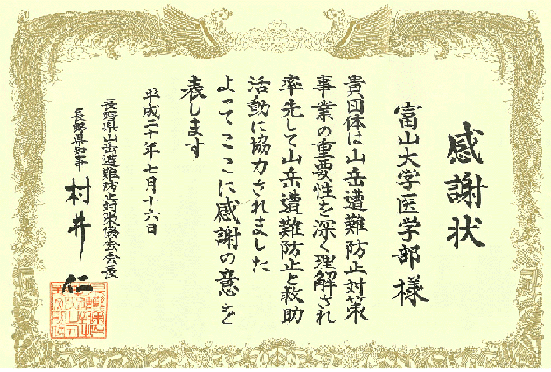 感謝状
富山大学医学部様
貴団体は山岳遭難防止対策
事業の重要性を深く理解され
率先して山岳遭難防止と救助
活動に協力されました
よってここに感謝の意を
表します
平成二十年七月十六日
長野県山岳遭難防止対策協会会長
長野県知事 村井仁